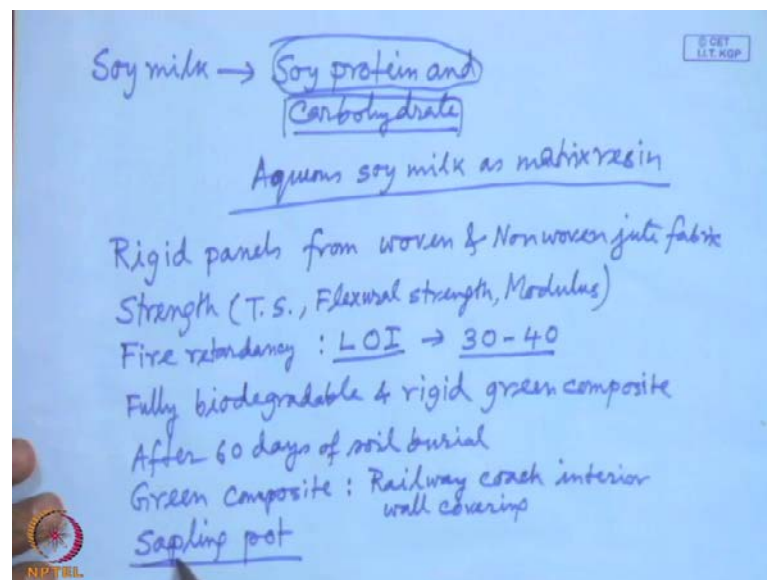 © CET
I.I.T. KGP
Soy milk → Soy protein and
Carbohydrate
Aqueous soy milk as matrix resin
Rigid panels from woven & Nonwoven jute fabric
Strength (T.S., Flexural strength, Modulus)
Fire retardancy : LOI → 30-40
Fully biodegradable & rigid green composite
After 60 days of soil burial
Green composite : Railway coach interior
wall covering
Sapling pot
NPTEL